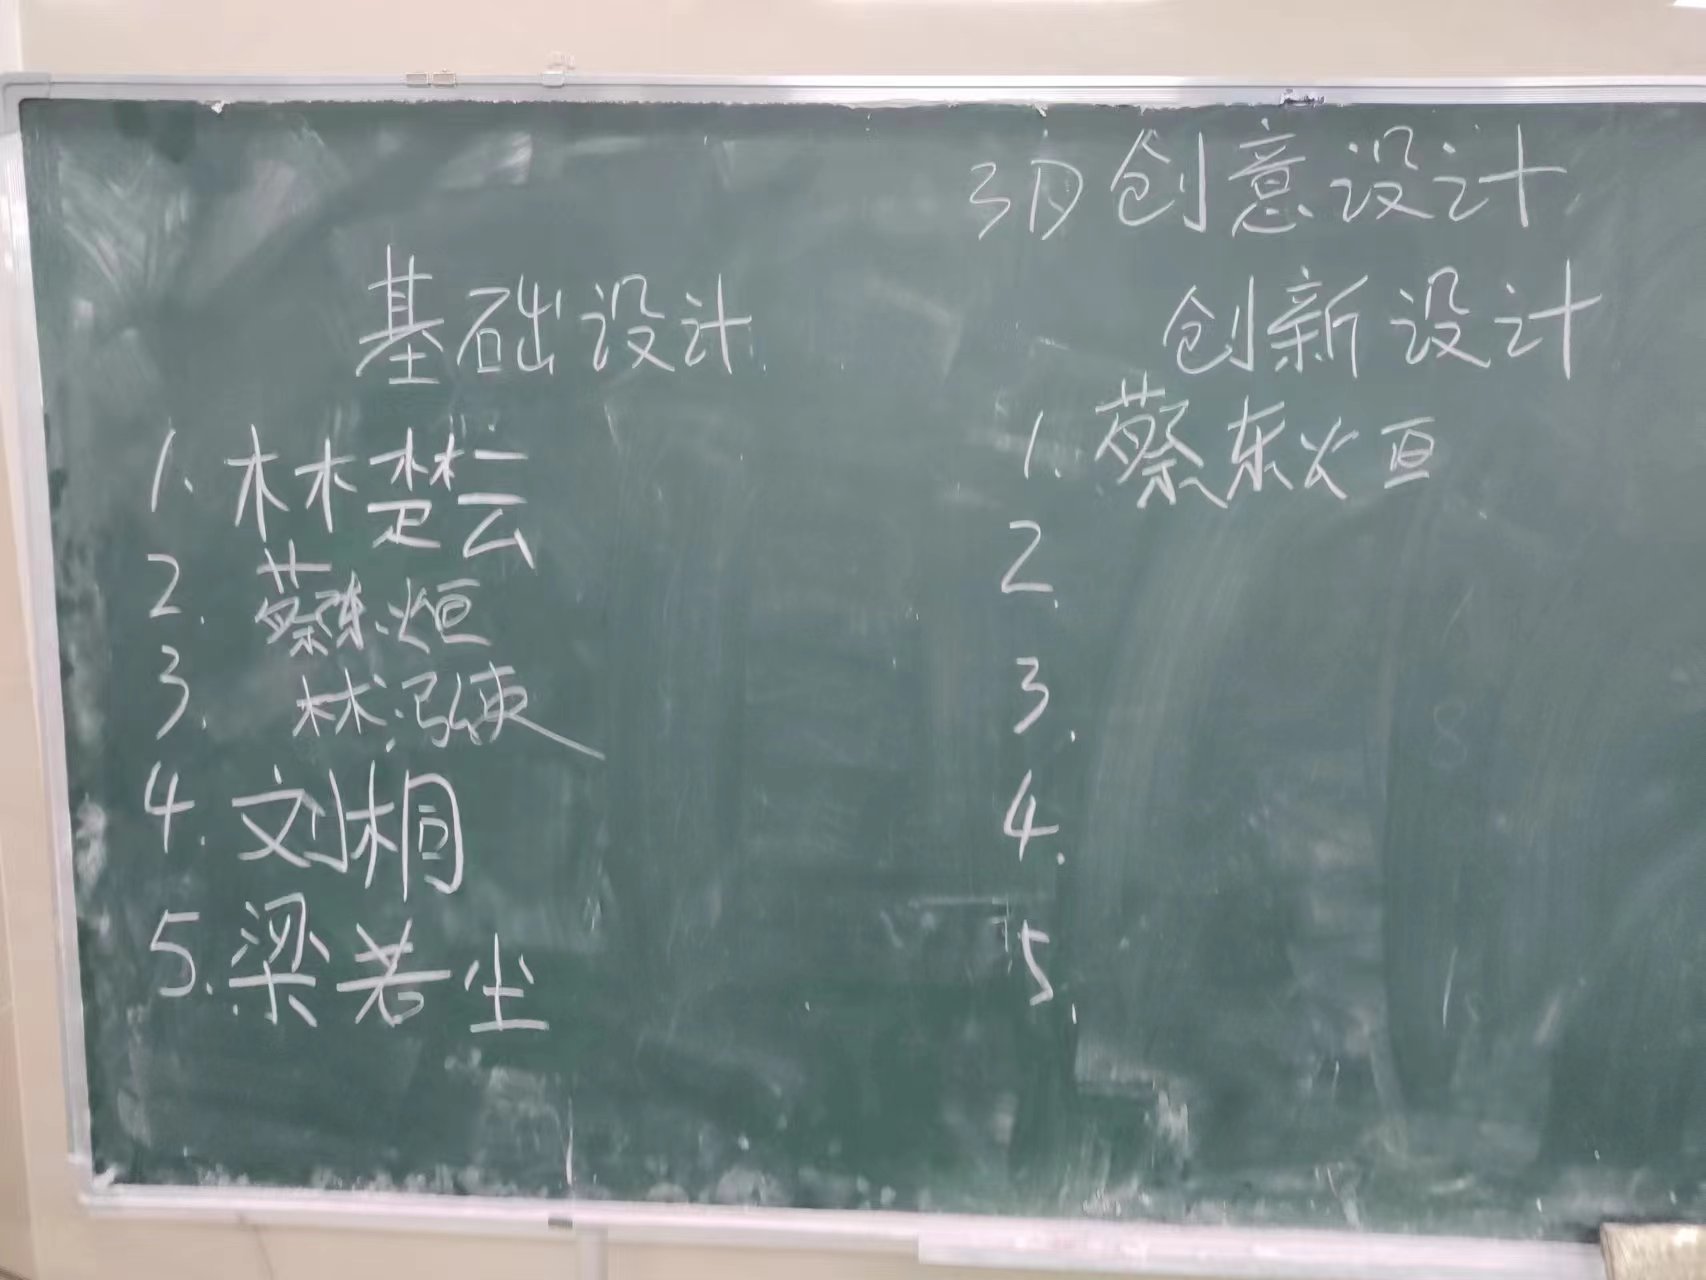 3D创意设计
基础设计
1. 林楚云
2. 蔡东烜
3. 林泓
4. 刘桐
5. 梁若尘
创新设计
1. 蔡东烜
2.
3.
4.
5.